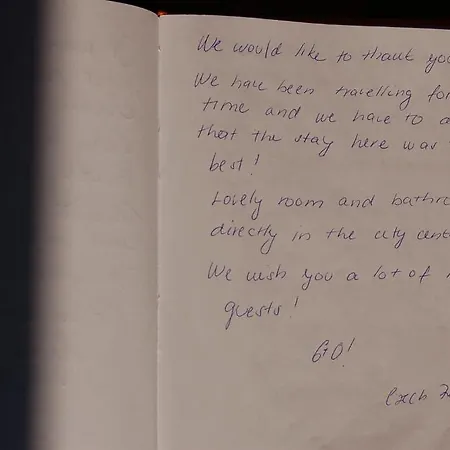 We would like to thank you
We have been travelling for
time and we have to a
that the stay here was
best!
Lovely room and bathro
directly in the city cent
We wish you a lot of
guests!
GO!